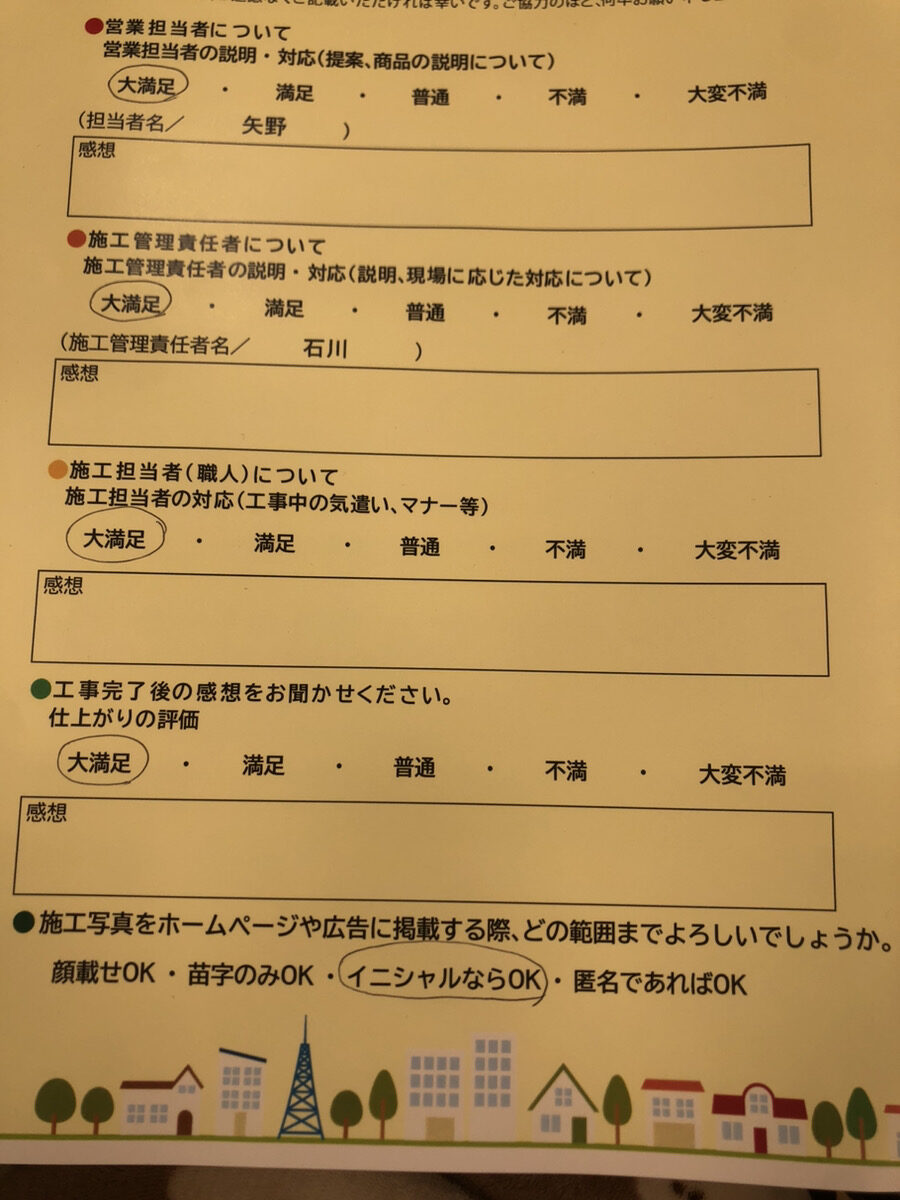 ご記載いただければ幸いです。ご協力のほど、何卒お願い
●営業担当者について
営業担当者の説明・対応(提案、商品の説明について)
大満足 ・ 満足 ・ 普通 ・ 不満 ・ 大変不満
(担当者名/ 矢野 )
感想
●施工管理責任者について
施工管理責任者の説明・対応(説明、現場に応じた対応について)
大満足 ・ 満足 ・ 普通 ・ 不満 ・ 大変不満
(施工管理責任者名/ 石川 )
感想
●施工担当者(職人)について
施工担当者の対応(工事中の気遣い、マナー等)
大満足 ・ 満足 ・ 普通 ・ 不満 ・ 大変不満
感想
●工事完了後の感想をお聞かせください。
仕上がりの評価
大満足 ・ 満足 ・ 普通 ・ 不満 ・ 大変不満
感想
●施工写真をホームページや広告に掲載する際、どの範囲までよろしいでしょうか。
顔載せOK・苗字のみOK・イニシャルならOK・匿名であればOK